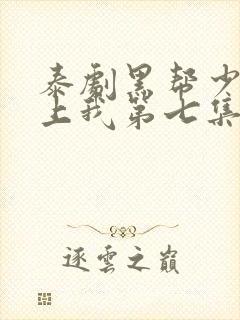 泰劇黑幫少
上我第七集
逐雲之巔